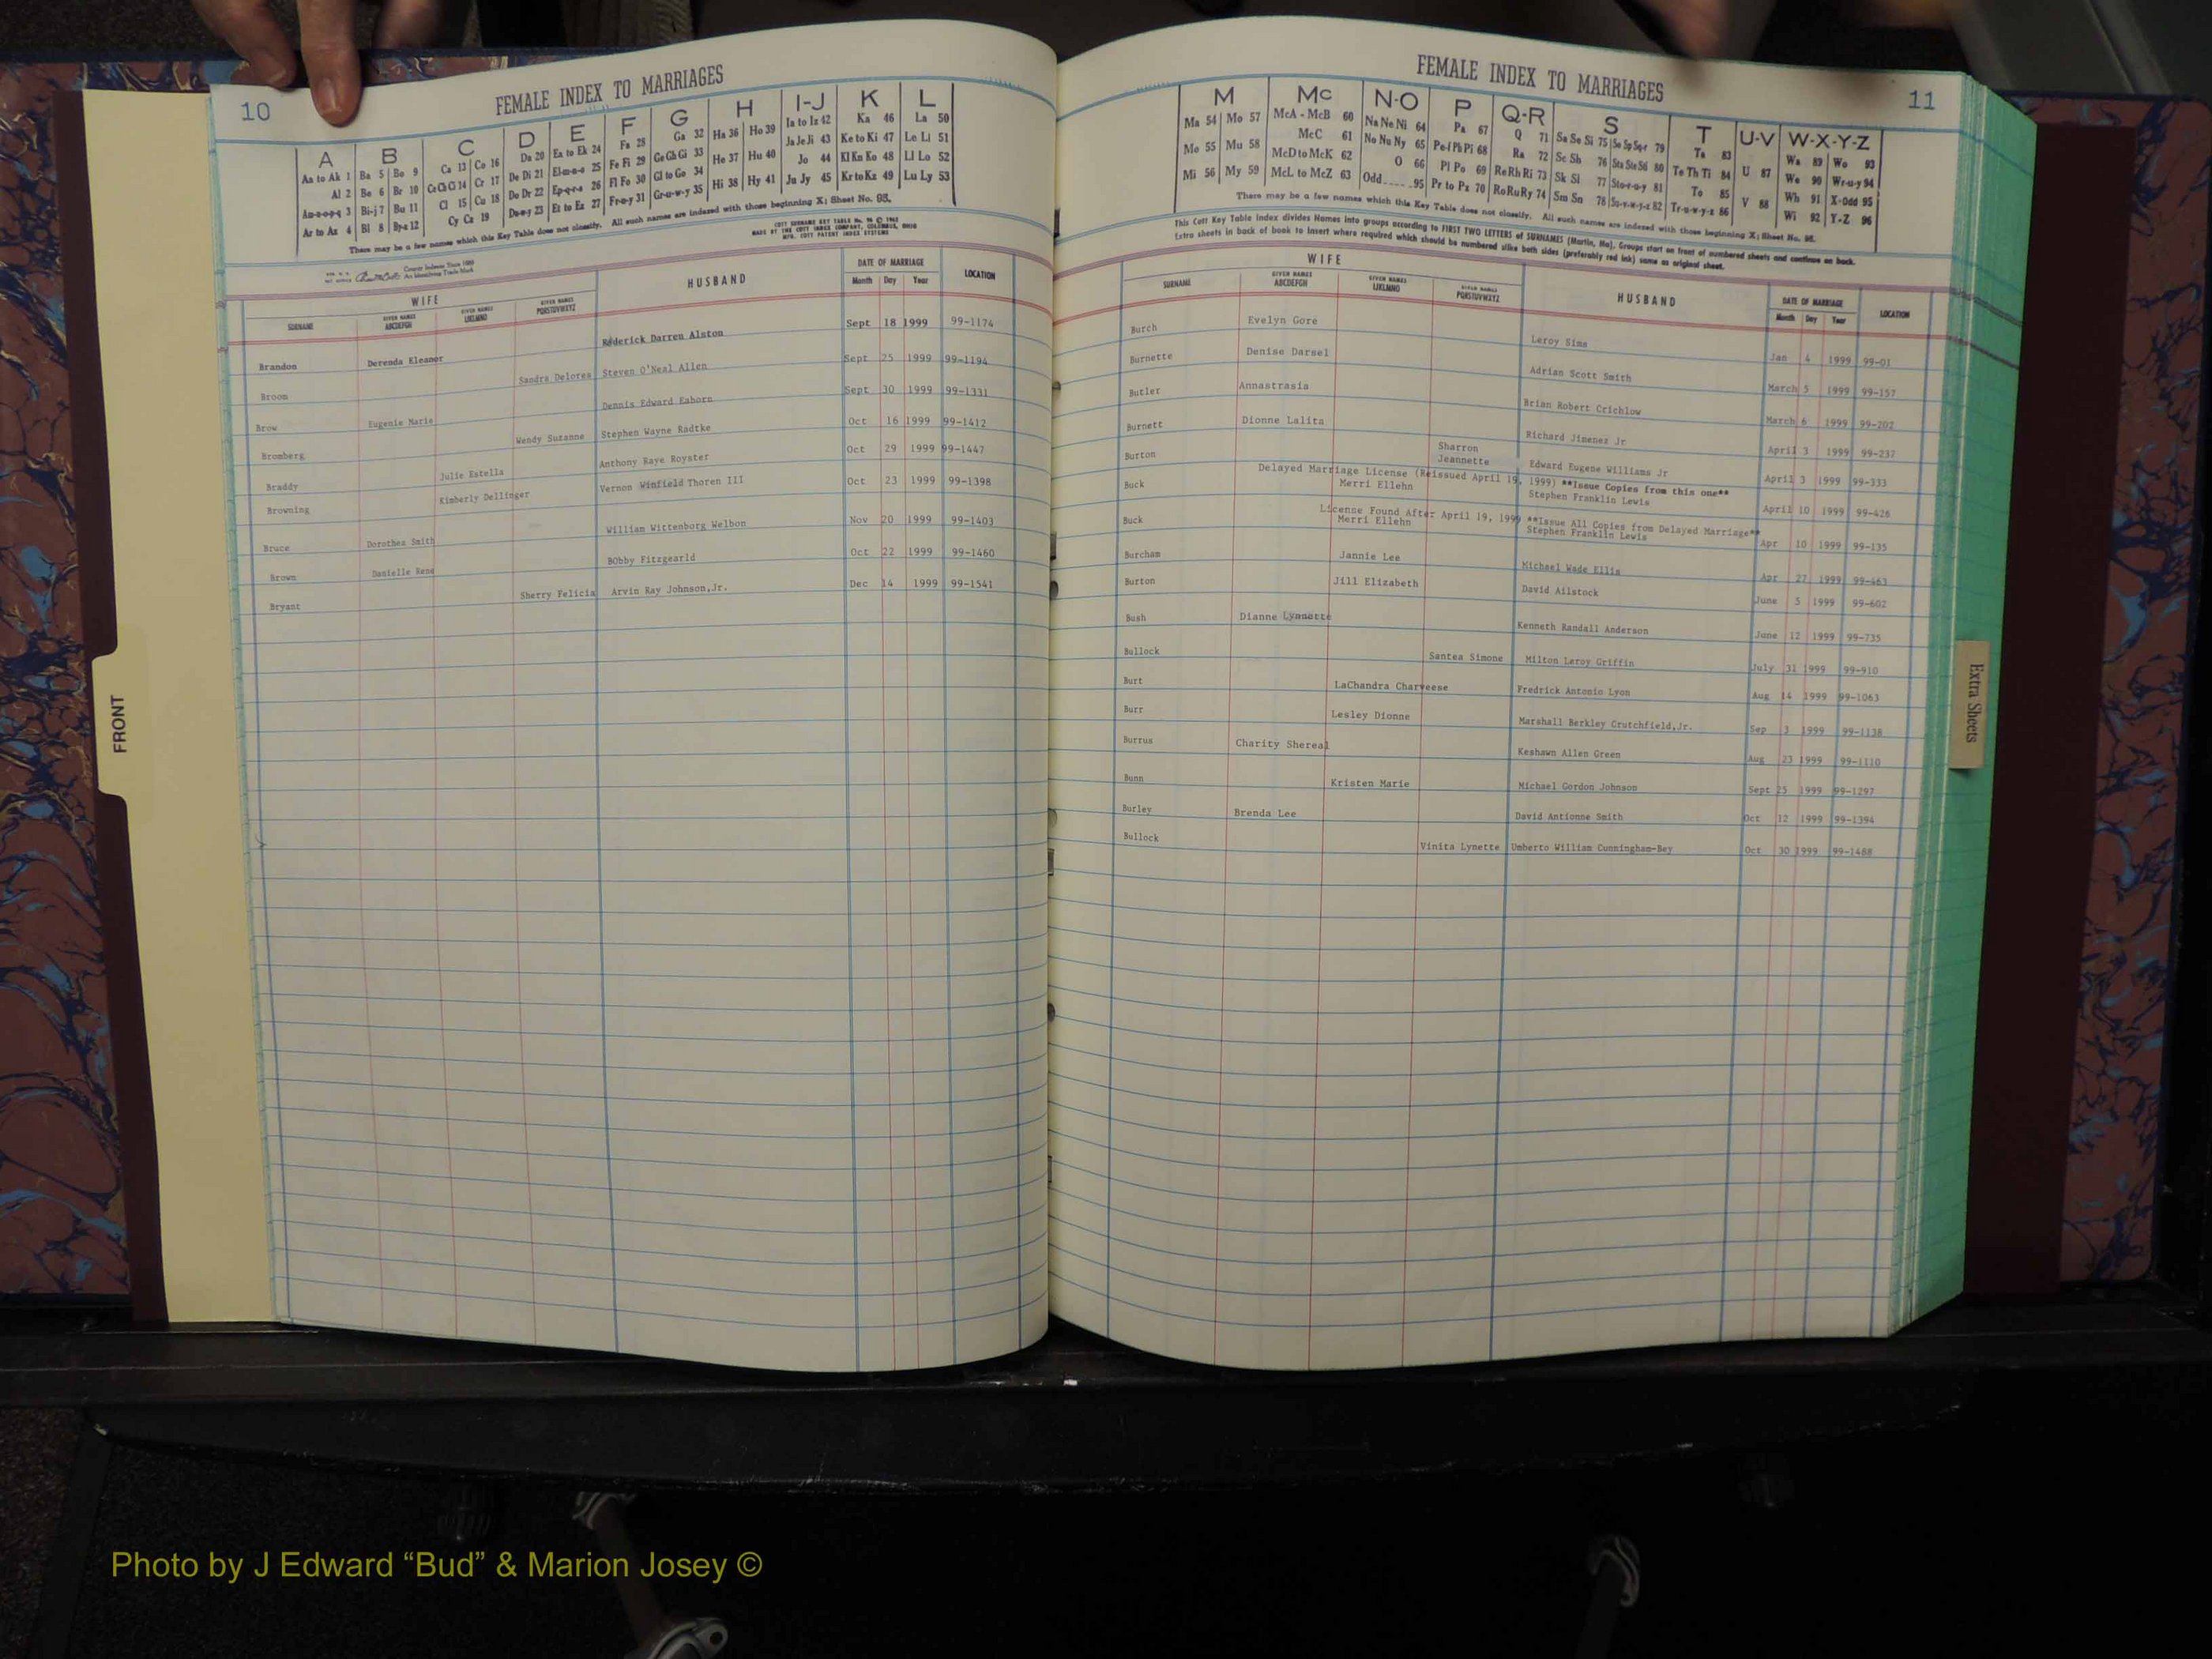 10
FEMALE INDEX TO MARRIAGES
A B C D E F G H I-J K L
Aa to Ak 1 Ba 5 Bo 9 Ca 13 Co 16 Da 20 Ea to Ek 24 Fa 28 Ga 32 Ha 36 Ho 39 Ia to Iz 42 Ka 46 La 50
Al 2 Be 6 Br 10 Ce Ch Ci 14 Cr 17 De Di 21 El-m-n-o 25 Fe Fi 29 Ge Gh Gi 33 He 37 Hu 40 Ja Je Ji 43 Ke to Ki 47 Le Li 51
Am-n-o-p-q 3 Bi-j 7 Bu 11 Cl 15 Cu 18 Do Dr 22 Ep-q-r-s 26 Fl Fo 30 Gl to Go 34 Hi 38 Hy 41 Jo 44 Kl Kn Ko 48 Ll Lo 52
Ar to Az 4 Bl 8 By-z 12 Cy Cz 19 Du-w-y 23 Et to Ez 27 Fr-u-y 31 Gr-u-w-y 35 Ju Jy 45 Kr to Kz 49 Lu Ly 53
There may be a few names which this Key Table does not classify. All such names are indexed with those beginning X; Sheet No. 95.
MADE BY THE COTT INDEX COMPANY, COLUMBUS, OHIO
MFG. COTT PATENT INDEX SYSTEMS
County Indexes Since 1888
An Identifying Trade Mark
WIFE HUSBAND DATE OF MARRIAGE LOCATION
SURNAME GIVEN NAMES ABCDEFGH GIVEN NAMES IJKLMNO GIVEN NAMES PQRSTUVWXYZ Month Day Year
Brandon Derenda Eleanor Roderick Darren Alston Sept 18 1999 99-1174
Broom Sandra Delores Steven O'Neal Allen Sept 25 1999 99-1194
Brow Eugenie Marie Dennis Edward Eaborn Sept 30 1999 99-1331
Bromberg Wendy Suzanne Stephen Wayne Radtke Oct 16 1999 99-1412
Braddy Julie Estella Anthony Raye Royster Oct 29 1999 99-1447
Browning Kimberly Dellinger Vernon Winfield Thoren III Oct 23 1999 99-1398
Bruce Dorothea Smith William Wittenborg Welbon Nov 20 1999 99-1403
Brown Danielle Rene BObby Fitzgearld Oct 22 1999 99-1460
Bryant Sherry Felicia Arvin Ray Johnson,Jr. Dec 14 1999 99-1541
FRONT
FEMALE INDEX TO MARRIAGES
11
M Mc N-O P Q-R S T U-V W-X-Y-Z
Ma 54 Mo 57 McA - McB 60 Na Ne Ni 64 Pa 67 Q 71 Sa Se Si 75 So Sp Sq-r 79 Ta 83 U 87 Wa 89 Wo 93
Me 55 Mu 58 McC 61 No Nu Ny 65 Pe-f Ph Pi 68 Ra 72 Sc Sh 76 Sta Ste Sti 80 Te Th Ti 84 V 88 We 90 Wr-u-y 94
Mi 56 My 59 McD to McK 62 O 66 Pl Po 69 Re Rh Ri 73 Sk Sl 77 Sto-r-u-y 81 To 85 Wh 91 X-Odd 95
McL to McZ 63 Odd 95 Pr to Pz 70 Ro Ru Ry 74 Sm Sn 78 Su-v-w-y-z 82 Tr-u-w-y-z 86 Wi 92 Y-Z 96
There may be a few names which this Key Table does not classify. All such names are indexed with those beginning X; Sheet No. 95.
This Cott Key Table index divides Names into groups according to FIRST TWO LETTERS of SURNAMES (Martin, Ma). Groups start on front of numbered sheets and continue on back.
Extra sheets in back of book to insert where required which should be numbered alike both sides (preferably red ink) same as original sheet.
WIFE HUSBAND DATE OF MARRIAGE LOCATION
SURNAME GIVEN NAMES ABCDEFGH GIVEN NAMES IJKLMNO GIVEN NAMES PQRSTUVWXYZ Month Day Year
Burch Evelyn Gore Leroy Sims Jan 4 1999 99-01
Burnette Denise Darsel Adrian Scott Smith March 5 1999 99-157
Butler Annastrasia Brian Robert Crichlow March 6 1999 99-202
Burnett Dionne Lalita Richard Jimenez Jr April 3 1999 99-237
Burton Sharron Jeannette Edward Eugene Williams Jr April 3 1999 99-333
Delayed Marriage License (Reissued April 19, 1999) **Issue Copies from this one**
Buck Merri Ellehn Stephen Franklin Lewis April 10 1999 99-426
License Found After April 19, 1999 **Issue All Copies from Delayed Marriage**
Buck Merri Ellehn Stephen Franklin Lewis Apr 10 1999 99-135
Burcham Jannie Lee Michael Wade Ellis Apr 27 1999 99-463
Burton Jill Elizabeth David Ailstock June 5 1999 99-602
Bush Dianne Lynnette Kenneth Randall Anderson June 12 1999 99-735
Bullock Santea Simone Milton Leroy Griffin July 31 1999 99-910
Burt LaChandra Charveese Fredrick Antonio Lyon Aug 14 1999 99-1063
Burr Lesley Dionne Marshall Berkley Crutchfield,Jr. Sep 3 1999 99-1138
Burrus Charity Shereal Keshawn Allen Green Aug 23 1999 99-1110
Bunn Kristen Marie Michael Gordon Johnson Sept 25 1999 99-1297
Burley Brenda Lee David Antionne Smith Oct 12 1999 99-1394
Bullock Vinita Lynette Umberto William Cunningham-Bey Oct 30 1999 99-1488
Extra Sheets
Photo by J Edward “Bud” & Marion Josey ©